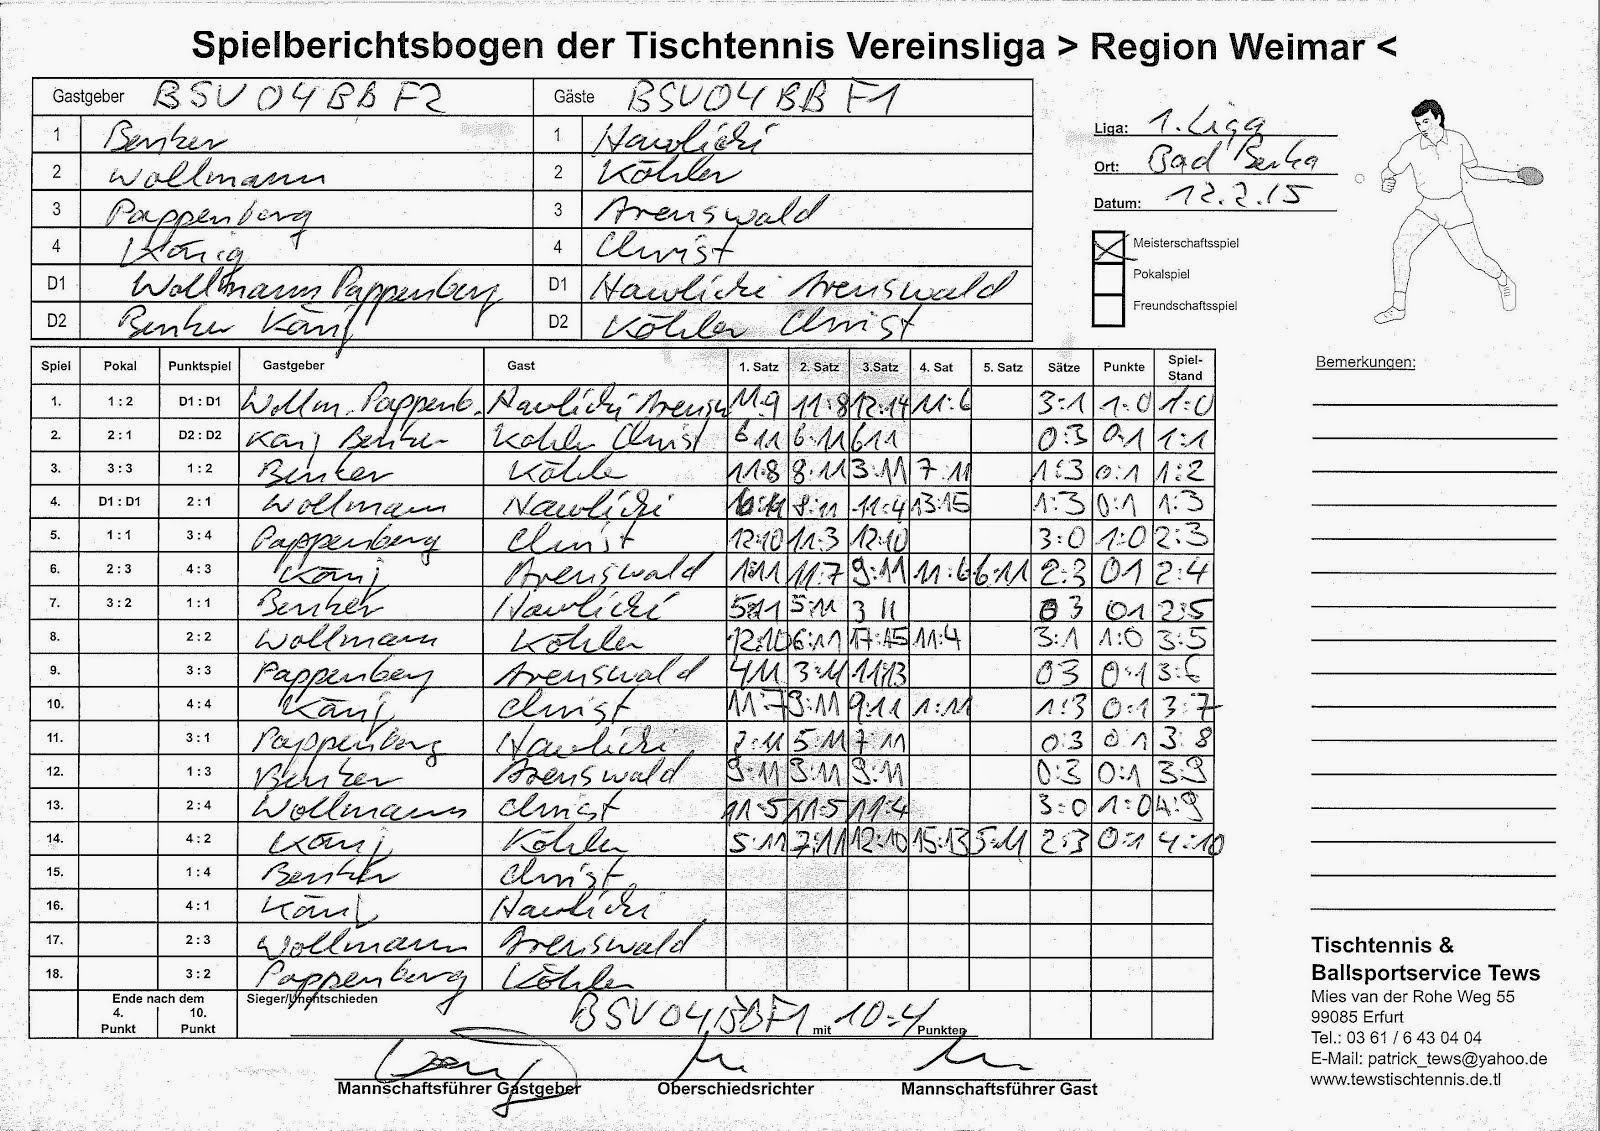 Spielberichtsbogen der Tischtennis Vereinsliga > Region Weimar <
Gastgeber BSV 04 BB F2 Gäste BSV 04 BB F1
1 Benker 1 Hawlicki
2 Wollmann 2 Köhler
3 Pappenberg 3 Arenswald
4 König 4 Christ
D1 Wollmann Pappenberg D1 Hawlicki Arenswald
D2 Benker König D2 Köhler Christ
Liga: 1. Liga
Ort: Bad Berka
Datum: 12.2.15
Meisterschaftsspiel
Pokalspiel
Freundschaftsspiel
Spiel Pokal Punktspiel Gastgeber Gast 1. Satz 2. Satz 3.Satz 4. Sat 5. Satz Sätze Punkte Spiel-Stand
1. 1 : 2 D1 : D1 Wollm. Pappenb. Hawlicki Arensw 11:9 11:8 12:14 11:6 3:1 1:0 1:0
2. 2 : 1 D2 : D2 König Benker Köhler Christ 6 11 6:11 6 11 0:3 0:1 1:1
3. 3 : 3 1 : 2 Benker Köhler 11:8 8:11 3:11 7 11 1:3 0:1 1:2
4. D1 : D1 2 : 1 Wollmann Hawlicki 8:11 11:4 13:15 1:3 0:1 1:3
5. 1 : 1 3 : 4 Pappenberg Christ 12:10 11:3 12:10 3:0 1:0 2:3
6. 2 : 3 4 : 3 König Arenswald 1:11 11:7 9:11 11:6 6:11 2:3 0 1 2:4
7. 3 : 2 1 : 1 Benker Hawlicki 5:11 5:11 3 11 0 3 0 1 2:5
8. 2 : 2 Wollmann Köhler 12:10 6:11 17:15 11:4 3:1 1:0 3:5
9. 3 : 3 Pappenberg Arenswald 4 11 3:11 11:13 0 3 0:1 3:6
10. 4 : 4 König Christ 11:7 9:11 9:11 1:11 1:3 0:1 3:7
11. 3 : 1 Pappenberg Hawlicki 5:11 7:11 0:3 0 1 3:8
12. 1 : 3 Benker Arenswald 9:11 9:11 9:11 0:3 0:1 3:9
13. 2 : 4 Wollmann Christ 11:5 11:5 11:4 3:0 1:0 4:9
14. 4 : 2 König Köhler 5:11 7:11 12:10 15:13 5:11 2:3 0:1 4:10
15. 1 : 4 Benker Christ
16. 4 : 1 König Hawlicki
17. 2 : 3 Wollmann Arenswald
18. 3 : 2 Pappenberg Köhler
Ende nach dem
4. Punkt 10. Punkt
Sieger/Unentschieden BSV 04 BB F1 mit 10:4 Punkten
Mannschaftsführer Gastgeber Oberschiedsrichter Mannschaftsführer Gast
Bemerkungen:
Tischtennis &
Ballsportservice Tews
Mies van der Rohe Weg 55
99085 Erfurt
Tel.: 03 61 / 6 43 04 04
E-Mail: patrick_tews@yahoo.de
www.tewstischtennis.de.tl